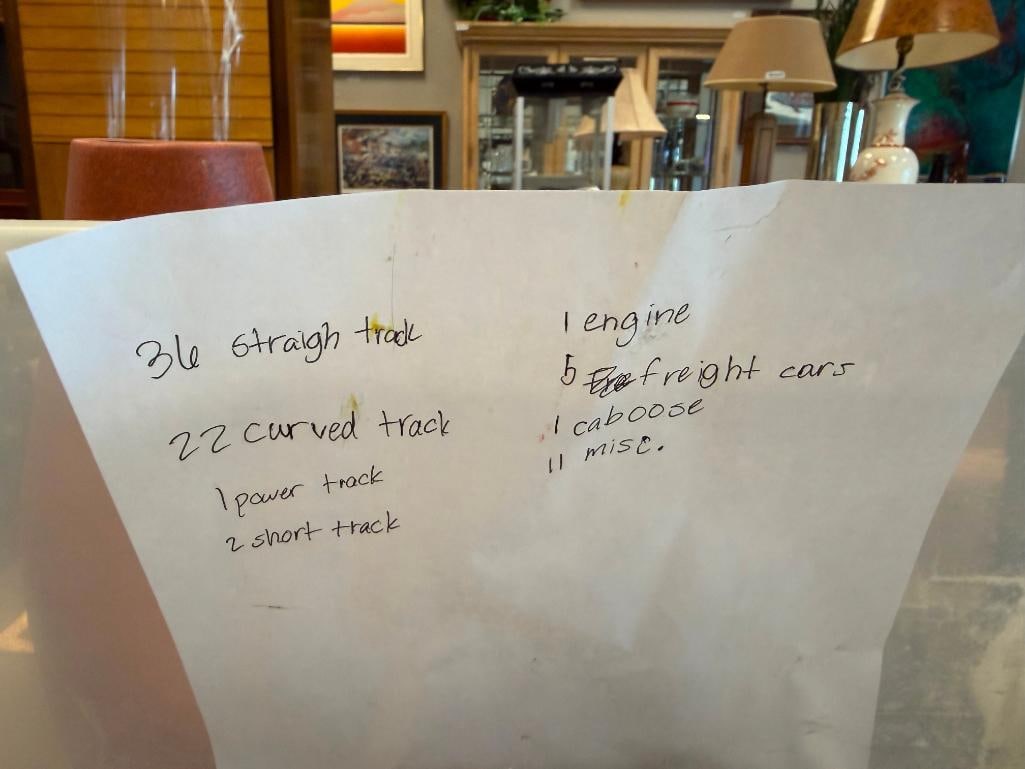 36 straigh track
22 curved track
1 power track
2 short track
1 engine
5 freight cars
1 caboose
11 misc.